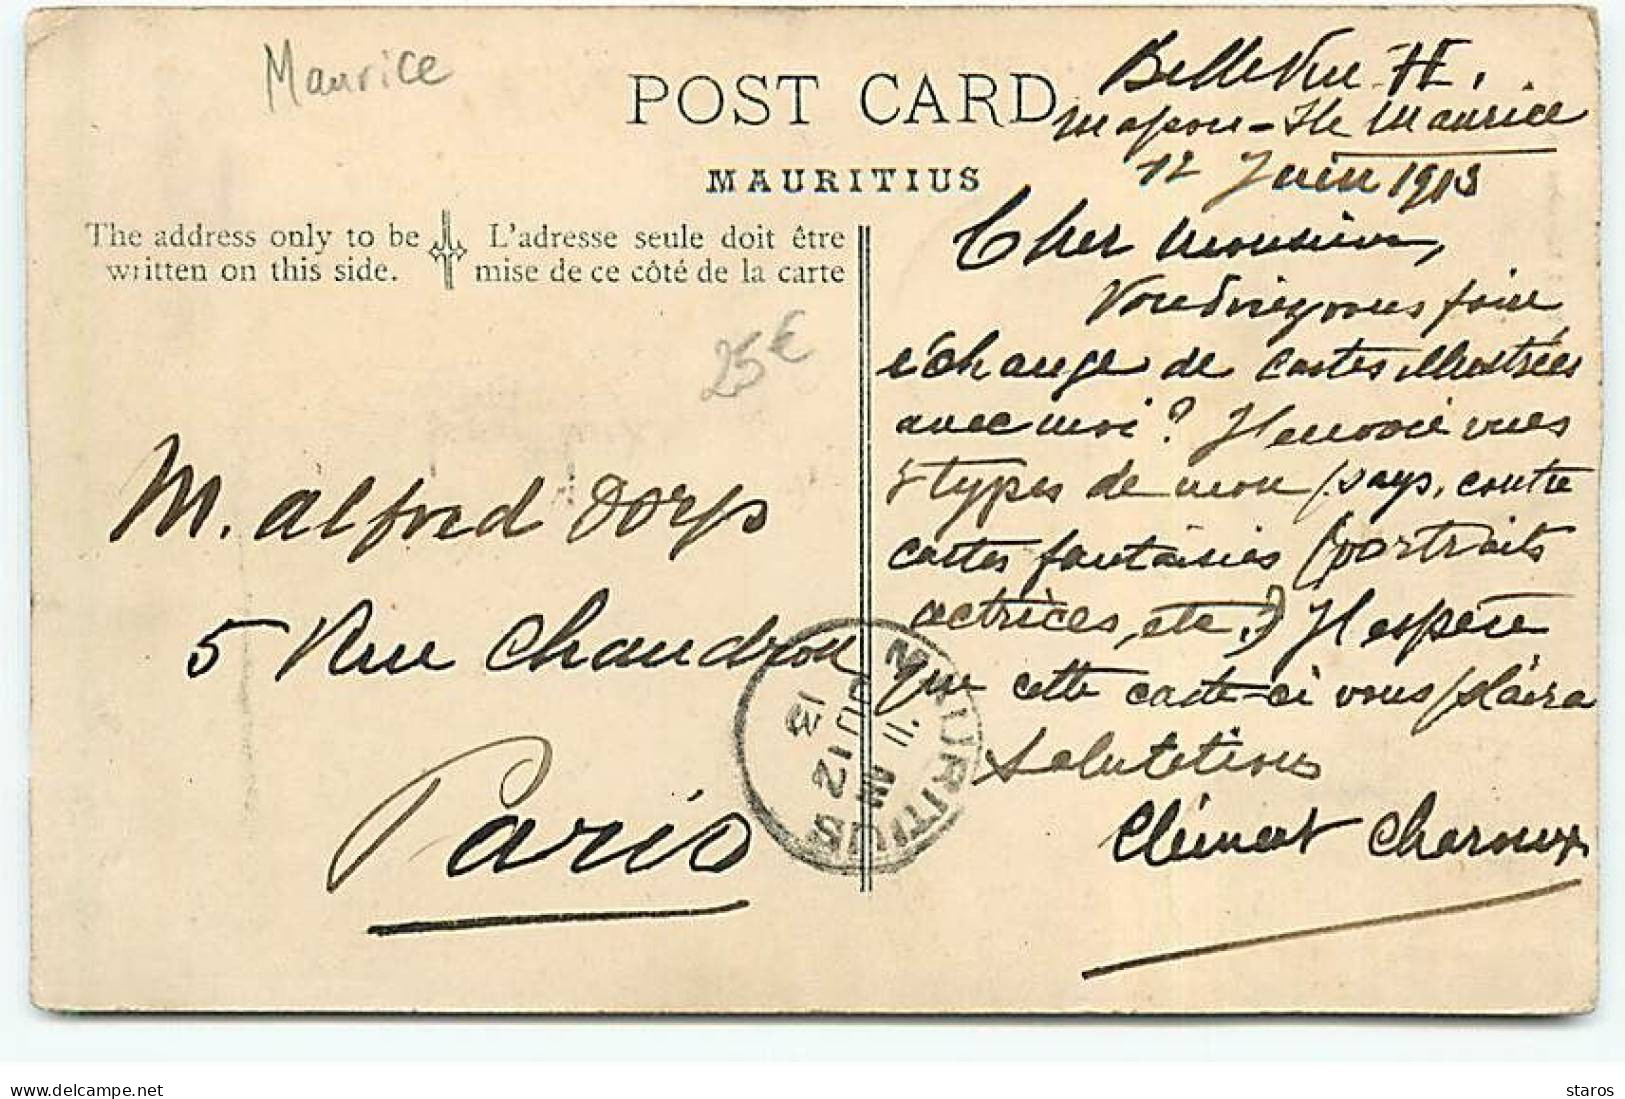 Maurice
POST CARD
MAURITIUS
The address only to be
written on this side.
L'adresse seule doit être
mise de ce côté de la carte
25€
M. Alfred Dorp
5 Rue Chaudron
Paris
Belle Vue H.
Mapou - Ile Maurice
12 Juin 1913
Cher Monsieur,
Voudriez vous faire
échange de cartes illustrées
avec moi? J'envoie vues
& types de mon pays, contre
cartes fantaisies (portraits
actrices, etc.) J'espère
que cette carte-ci vous plaira
Salutations
Clément Charoux
MAURITIUS
11 AM
JU 12
13
www.delcampe.net
staros